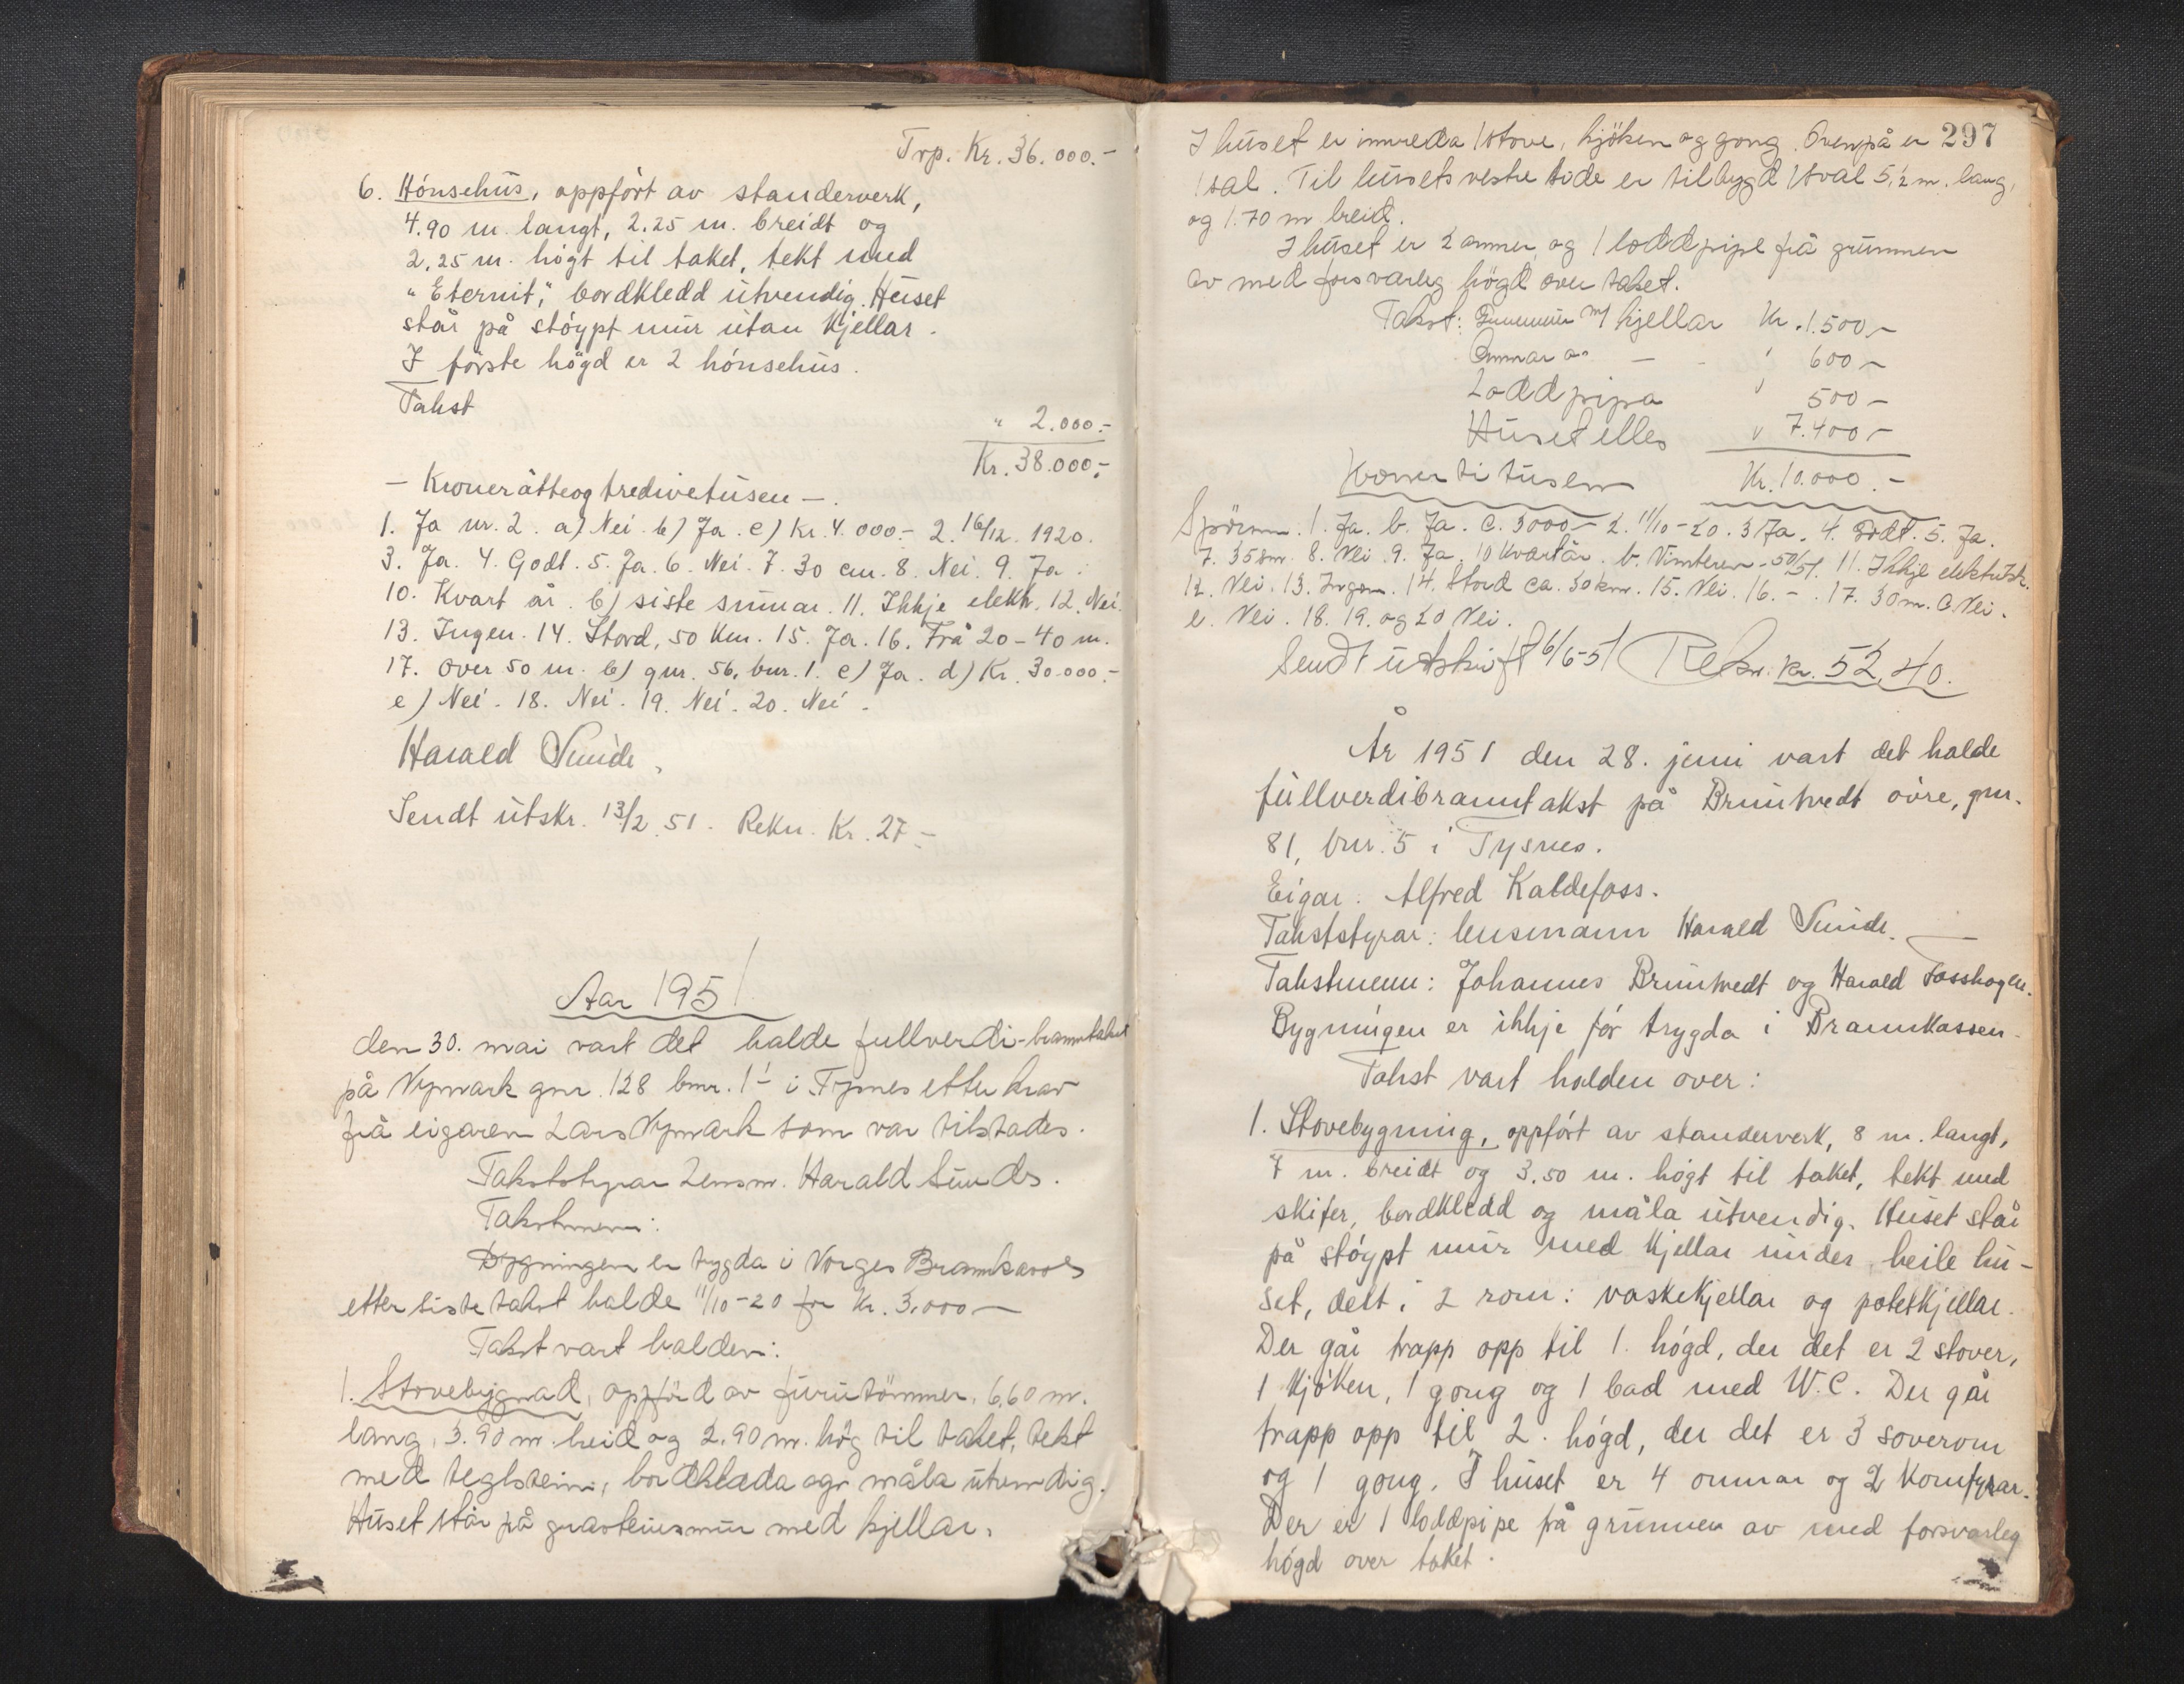 Trp. Kr. 36.000.-
6. Hónsehús, oppfórt av standerverk,
4.90 m. langt, 2.25 m. breidt og
2.25 m. högt til taket, tekt med
"Eternit", bordkledd utvendig. Huset
står på stóypt mur utan Kjellar.
I förste högd er 2 hónsehus.
Takst
" 2.000.-
Kr. 38.000.-
- Kroneråtteogtredivetusen -.
1. Ja nr. 2. a) Nei b) Ja. c) Kr. 4.000.- 2. 16/12. 1920.
3. Ja. 4. Godt. 5. Ja. 6. Nei. 7. 30 cm. 8. Nei. 9. Ja.
10. Kvart år. b) siste sumar. 11. Ikkje elektr. 12. Nei.
13. Ingen. 14. Stord, 50 Km. 15. Ja. 16. Frå 20-40 m.
17. Over 50 m. b) gnr. 56, bnr. 1. c) Ja. d) Kr. 30.000.-
e) Nei. 18. Nei. 19. Nei. 20. Nei.
Harald Sunde.
Sendt utskr. 13/2. 51. Rekn. Kr. 27.-
Aar 1951
den 30. mai vart det halde fullverdi-branntakst
på Nymark gnr. 128 bnr. 1 i Tysnes etter krav
frå eigaren Lars Nymark som var tilstades.
Takststyrar Lensm. Harald Sunde.
Takstmenn:
Bygningen er trygda i Norges Brannkasse
etter siste takst halde 11/10-20 for kr. 3.000-
Takst vart halden:
1. Stovebygnad, oppförd av furutömmer, 6,60 m.
lang, 3.90 m. breid og 2.90 m. hög til taket, tekt
med teglstein, bordklæda og måla utvendig.
Huset står på gråsteinsmur med kjellar.
297
I huset er innreda 1 stove, kjöken og gong. Ovenpå er
1 sal. Til husets vestre side er tilbygd 1 sval 5,2 m. lang,
og 1.70 m breid.
I huset er 2 omner og 1 loddpipe frå grunnen
av med forsvarleg högd over taket.
Takst: Grunnmur m/ kjellar Kr. 1.500-
Omnar a. - - " 600-
Loddpipa " 500-
Huset elles " 7.400-
Kroner ti tusen Kr. 10.000.-
Spörsm. 1. Ja. b. Ja. c. 3000- 2. 11/10-20. 3 Ja. 4. Godt. 5. Ja.
7. 35 cm. 8. Nei. 9. Ja. 10 Kvartår. b. Vinteren - 50/51. 11. Ikkje elektrisk.
12. Nei. 13. Ingen. 14. Stord ca. 30 km. 15. Nei. 16. - . 17. 30 m. c. Nei.
e. Nei. 18. 19. og 20 Nei.
Sendt utskrift 6/6-51 Rekn. kr. 52,40.
År 1951 den 28. juni vart det halde
fullverdibranntakst på Bruntvedt övre, gnr.
81, bnr. 5 i Tysnes.
Eigar: Alfred Kaldefoss.
Takststyrar: lensmann Harald Sunde.
Takstmenn: Johannes Bruntvedt og Harald Fosshagen.
Bygningen er ikkje för trygda i Brannkassen.
Takst vart halden over:
1. Stovebygning, oppfórt av standerverk, 8 m. langt,
7 m. breidt og 3.50 m. högt til taket, tekt med
skifer, bordkledd og måla utvendig. Huset står
på stóypt mur med Kjellar under heile hu-
set, delt i 2 rom: vaskekjellar og potetkjellar.
Der går trapp opp til 1. högd, der det er 2 stover,
1 kjöken, 1 gong og 1 bad med W.C. Der går
trapp opp til 2. högd, der det er 3 soverom
og 1 gong. I huset er 4 omnar og 2 Komfyrar.
Der er 1 loddpipe frå grunnen av med forsvarleg
högd over taket.